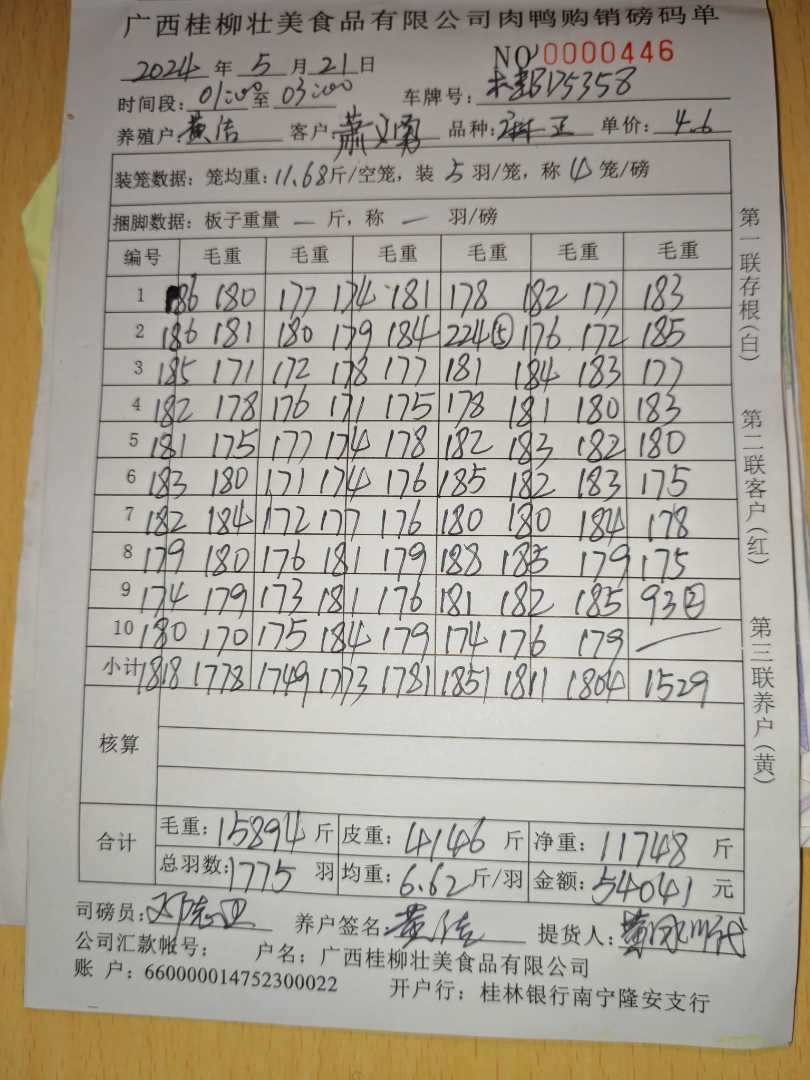 广西桂柳壮美食品有限公司肉鸭购销磅码单
2024 年 5 月 21 日 NO 0000446
时间段: 01:00 至 03:00 车牌号: D5358
养殖户: 黄 客户: 萧 勇 品种: 单价: 4.6
装笼数据: 笼均重: 11.68 斤/空笼, 装 5 羽/笼, 称 4 笼/磅
捆脚数据: 板子重量 — 斤, 称 — 羽/磅
编号 毛重 毛重 毛重 毛重 毛重 毛重
1 186 180 177 174 181 178 182 177 183
2 186 181 180 179 184 224⑤ 176 172 185
3 185 171 172 178 177 181 184 183 177
4 182 178 176 171 175 178 181 180 183
5 181 175 177 174 178 182 183 182 180
6 183 180 171 174 176 185 182 183 175
7 182 184 172 177 176 180 180 184 178
8 179 180 176 181 179 188 185 179 175
9 174 179 173 181 176 181 182 185 93②
10 180 170 175 184 179 174 176 179 —
小计 1818 1778 1749 1773 1781 1851 1811 1804 1529
核算
合计 毛重: 15894 斤 皮重: 4146 斤 净重: 11748 斤
总羽数: 1775 羽 均重: 6.62 斤/羽 金额: 54041 元
司磅员: 邓志 养户签名 黄 提货人: 黄 代
公司汇款帐号: 户名: 广西桂柳壮美食品有限公司
账 户: 660000014752300022 开户行: 桂林银行南宁隆安支行
第一联存根(白) 第二联客户(红) 第三联养户(黄)